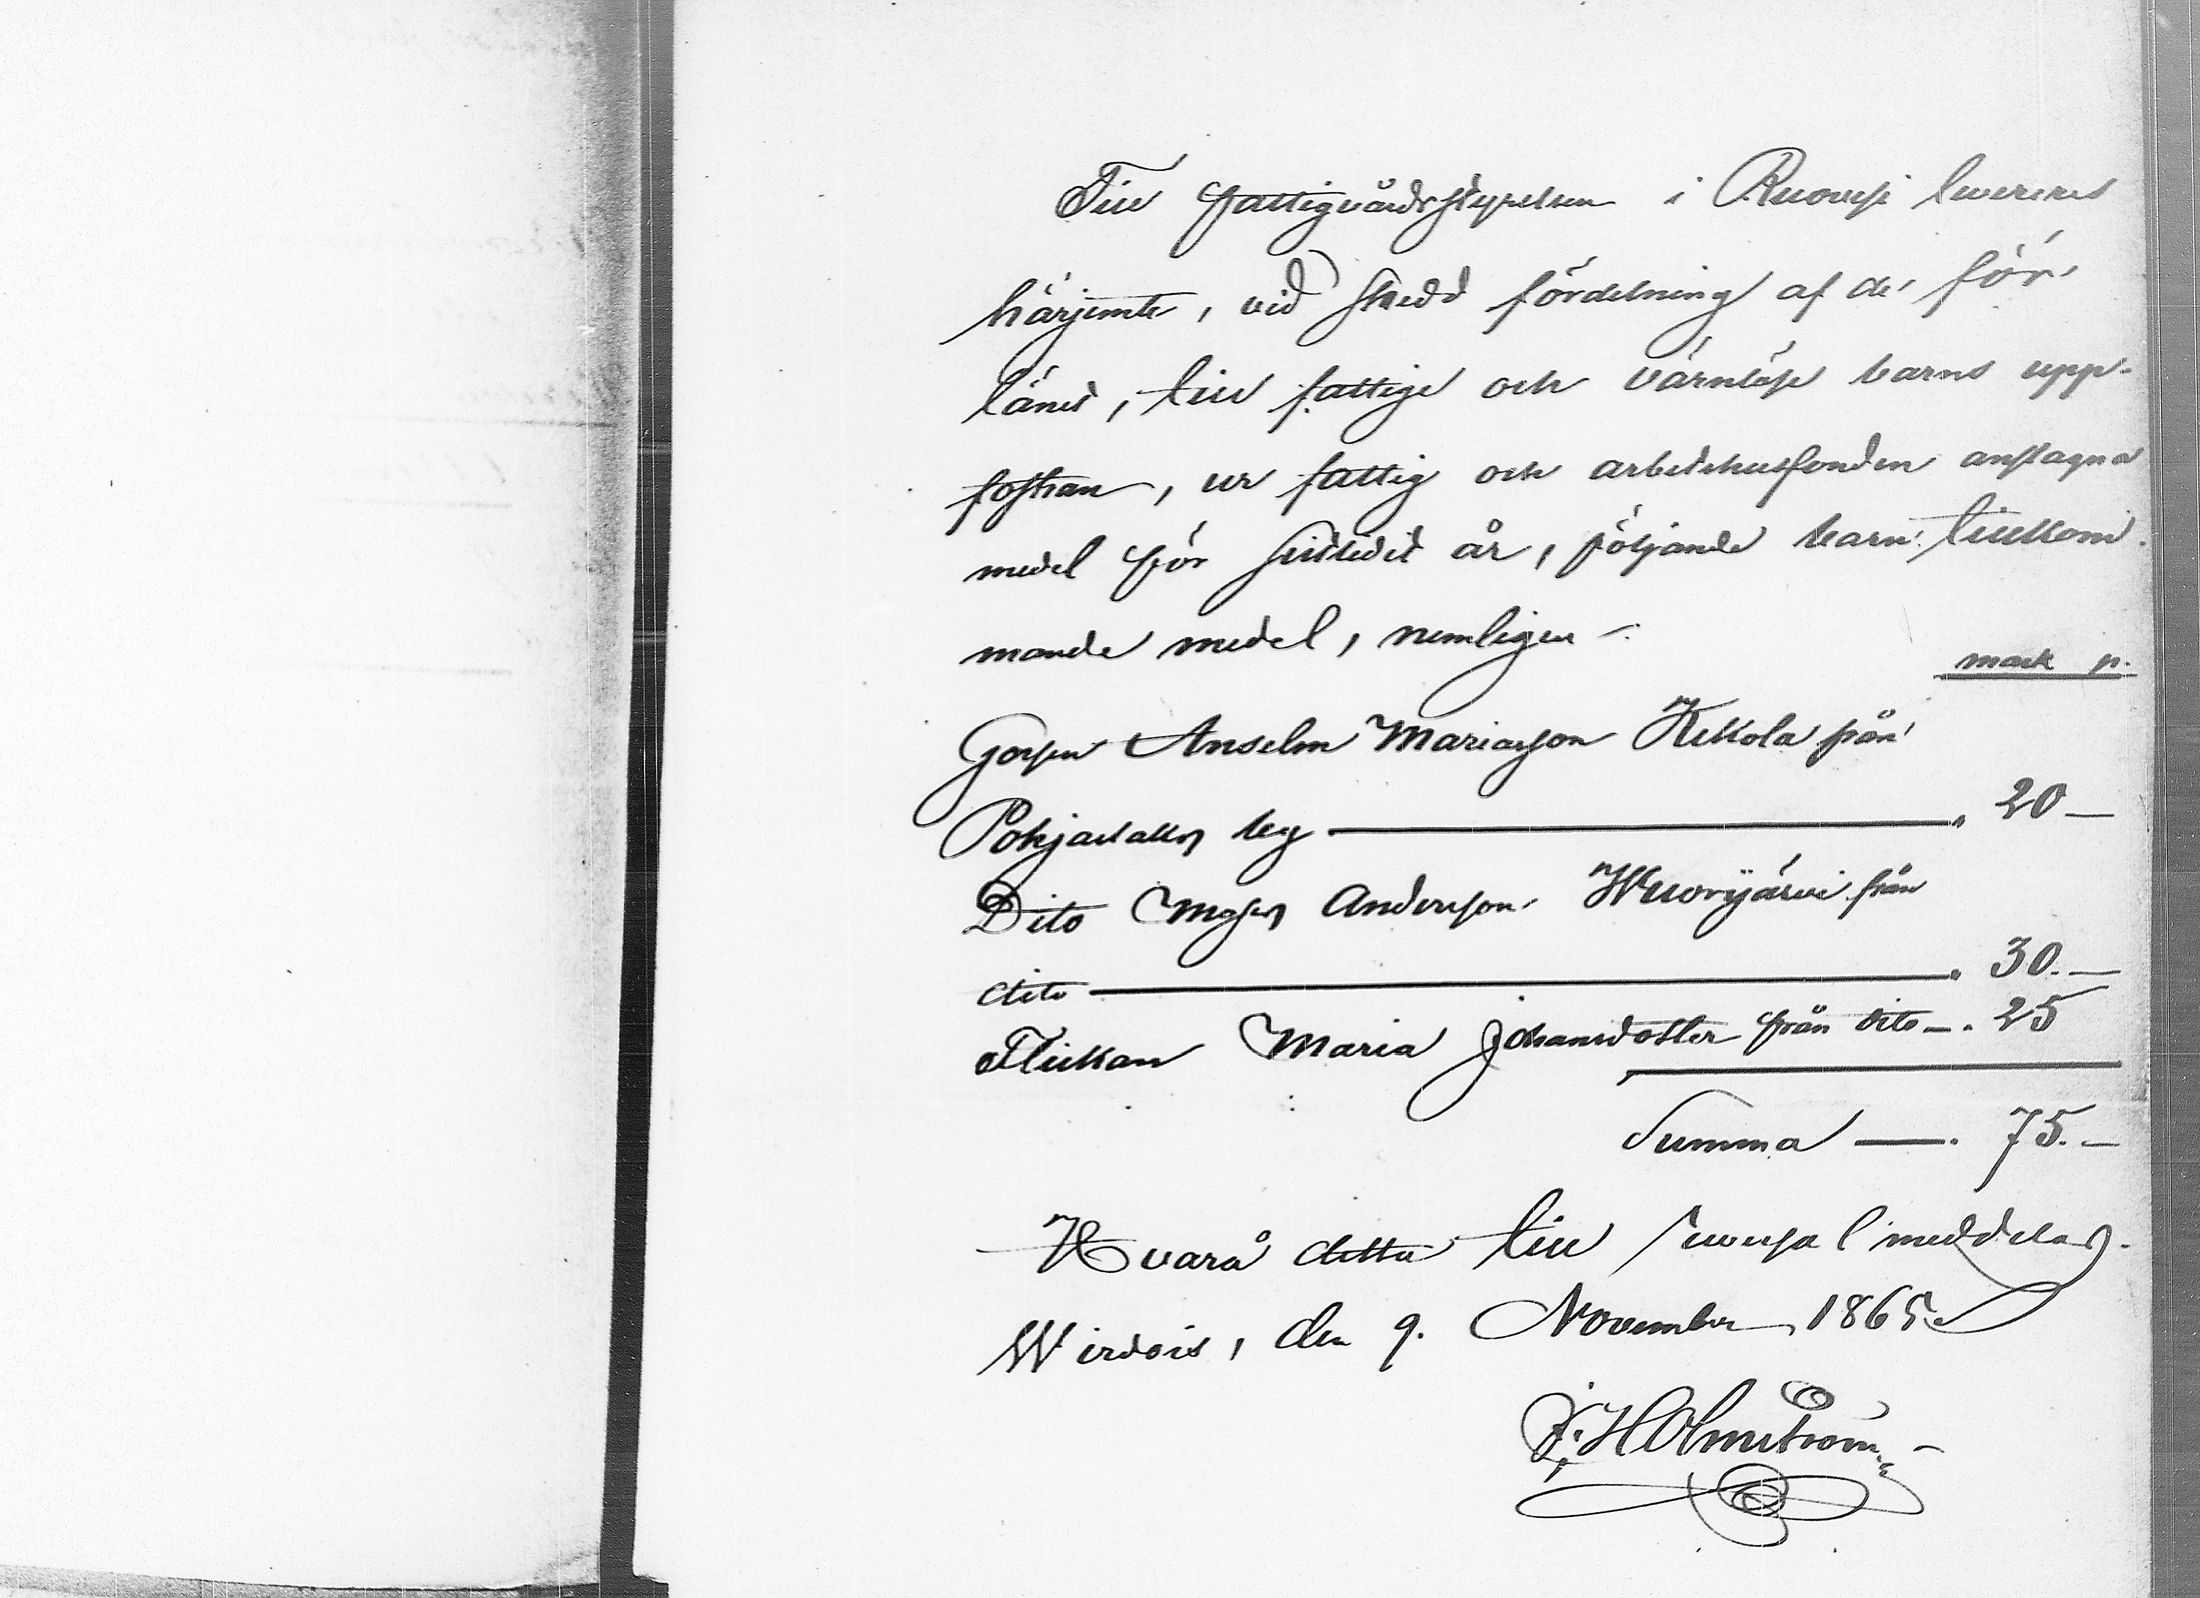 Till Fattigvårdsstyrelsen i Ruovesi levereres
härjemte, vid skedd fördelning af de för
länet, till fattige och värnlöse barns upp-
fostran, ur fattig och arbetshusfonden anslagna
medel för sistledit år, följande barn tillkom-
mande medel, nemligen:
mark p.
Gossen Anselm Mariasson Kekola från
Pohjaslaks by — " 20 —
Dito Andersson Wuorijärvi från
dito — " 30. —
Flickan Maria Johansdotter från dito — " 25
Summa — " 75. —
Hvarå detta till meddelas.
Wirdois, den 9. November 1865.
F. Holmström